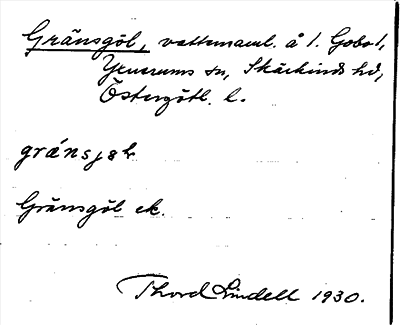 Gränsgöl, vattensaml. å 1. Gobo 1,
Yxnerums sn, Skärkinds hd,
Östergötl. l.
gränsjøl
Gränsgöl ek.
Thord Lindell 1930.